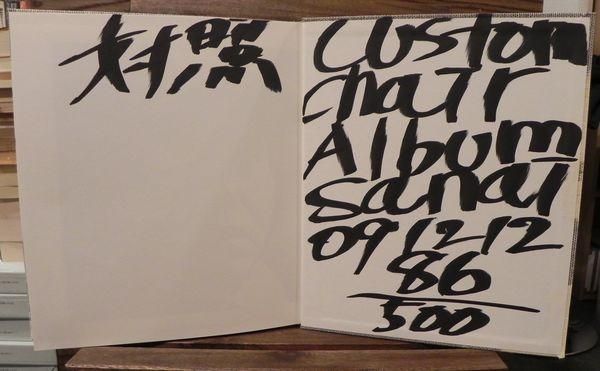 対照
Custom
chair
Album
sanai
09 12 12
86
500